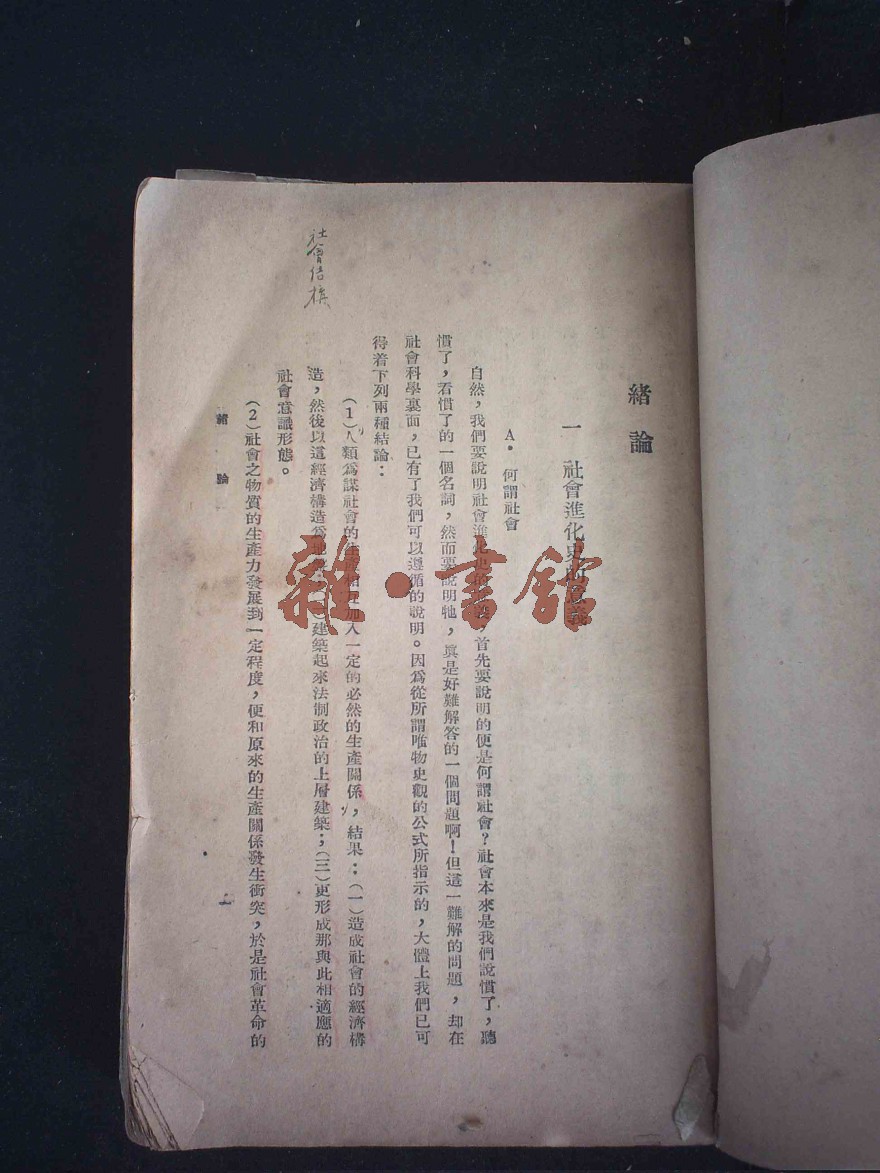 緒論
一　社會進化史的意義
A．何謂社會
自然，我們要說明社會進化史的意義，首先要說明的便是何謂社會？社會本來是我們說慣了，聽
慣了，看慣了的一個名詞，然而要說明牠，眞是好難解答的一個問題啊！但這一難解的問題，却在
社會科學裏面，已有了我們可以遵循的說明。因爲從所謂唯物史觀的公式所指示的，大體上我們已可
得着下列兩種結論：
（1）人類爲謀社會的生產相互加入一定的必然的生產關係，結果：（一）造成社會的經濟構
造，然後以這經濟構造爲地 建築起來法制政治的上層建築；（三）更形成那與此相適應的
社會意識形態。
（2）社會之物質的生產力發展到一定程度，便和原來的生產關係發生衝突，於是社會革命的
緒論
一
社會结構
雜·書館